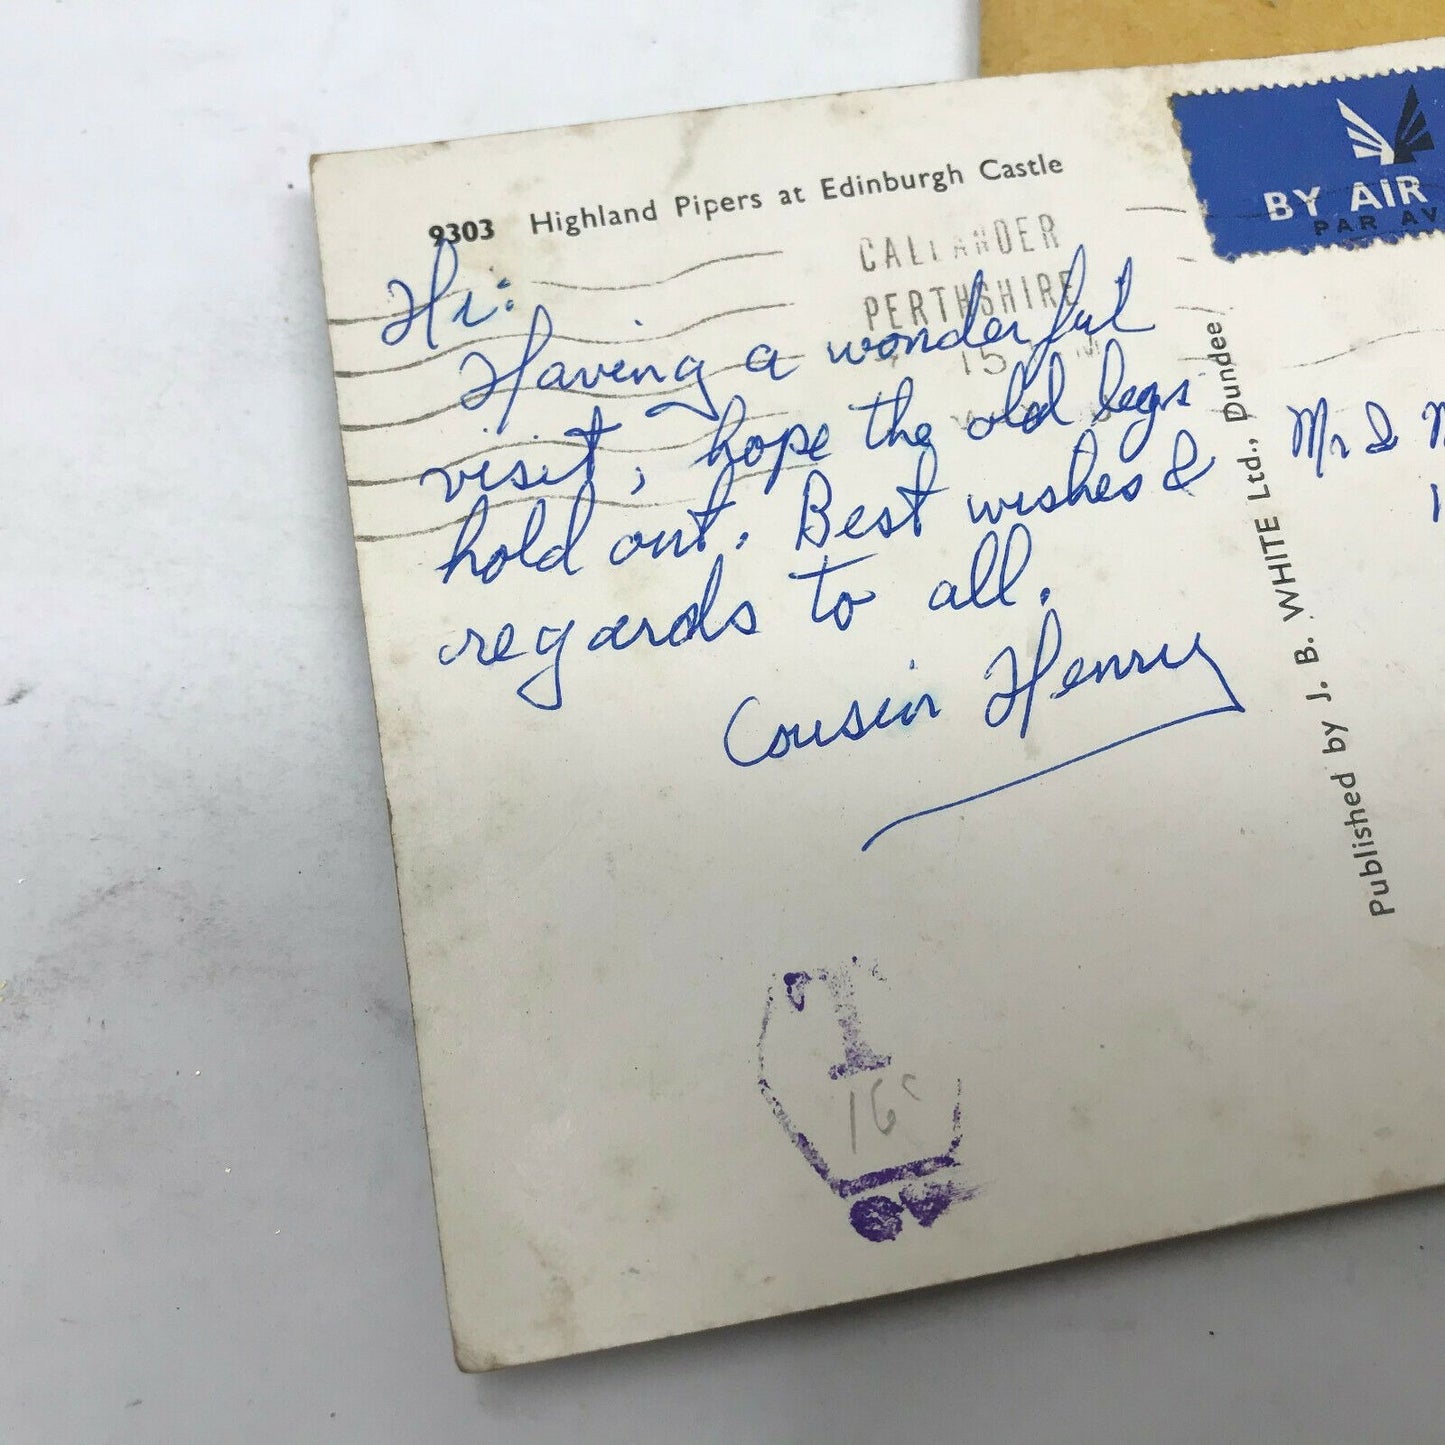 9303 Highland Pipers at Edinburgh Castle
BY AIR
PAR AV
CALLANDER
PERTHSHIRE
15
Hi:
Having a wonderful
visit, hope the old legs
hold out. Best wishes &
regards to all.
Cousin Henry
Published by J. B. WHITE Ltd., Dundee
Mr & M
T
16c